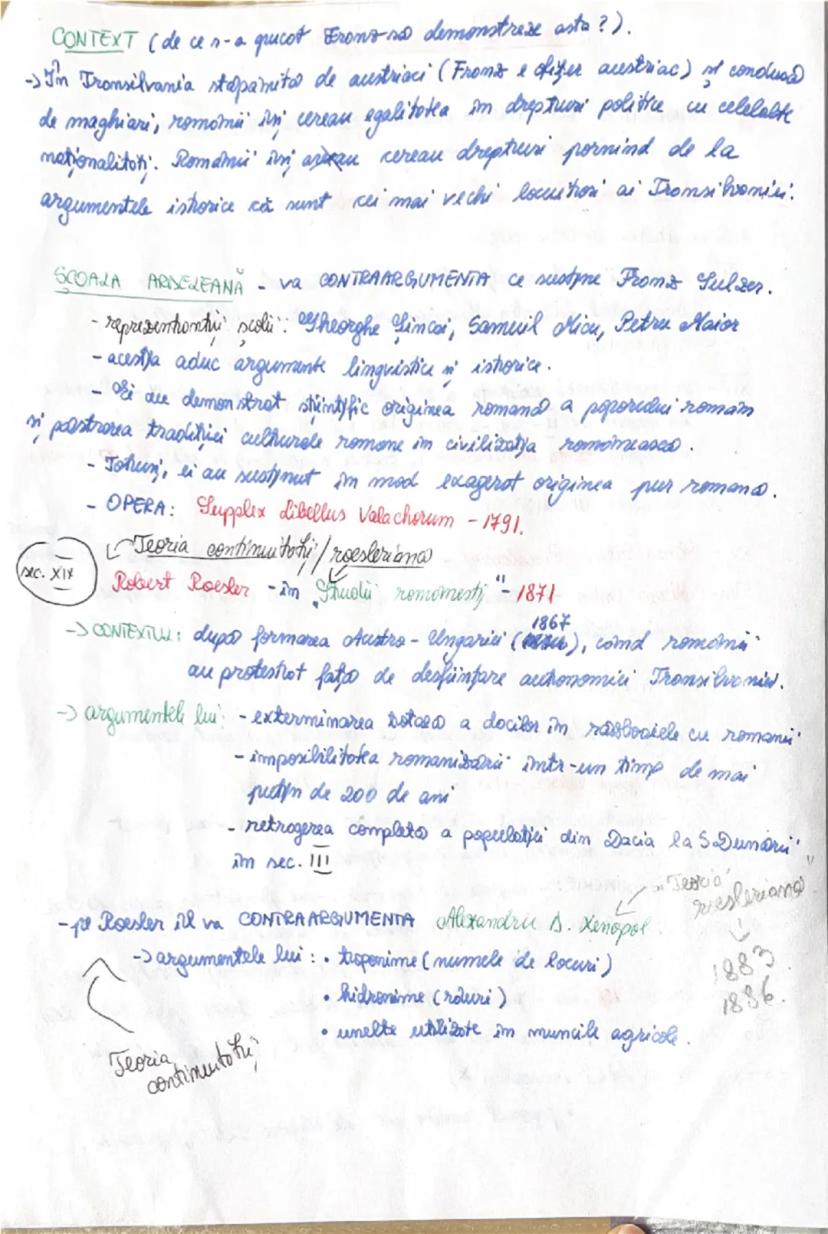 CONTEXT (de ce s-a apucat Franz să demonstreze asta?).
→ În Transilvania stăpânită de austrieci (Franz e ofițer austriac) și condusă
de maghiari, românii își cereau egalitatea în drepturi politice cu celelalte
naționalități. Românii își cereau drepturi pornind de la
argumentele istorice că sunt cei mai vechi locuitori ai Transilvaniei.
ȘCOALA ARDELEANĂ - va CONTRAARGUMENTA ce susține Franz Sulzer.
- reprezentanții școlii: Gheorghe Șincai, Samuil Micu, Petru Maior
- aceștia aduc argumente lingvistice și istorice.
- Ei au demonstrat științific originea romană a poporului român
și păstrarea tradiției culturale romane în civilizația românească.
- Totuși, ei au susținut în mod exagerat originea pur romană.
- OPERA: Supplex Libellus Valachorum - 1791.
Teoria continuității/roesleriană
sec. XIX
Robert Roesler - în „Studii românești" - 1871
1867
→ CONTEXTUL: după formarea Austro-Ungariei ( ), când românii
au protestat față de desființare autonomiei Transilvaniei.
→ argumentele lui: - exterminarea totală a dacilor în războaiele cu romanii
- imposibilitatea romanizării într-un timp de mai
puțin de 200 de ani
- retragerea completă a populației din Dacia la S Dunării
în sec. III
„Teoria
roesleriană"
- pe Roesler îl va CONTRAARGUMENTA Alexandru D. Xenopol
→ argumentele lui: • toponime (numele de locuri)
1883
• hidronime (râuri)
1886.
• unelte utilizate în muncile agricole.
Teoria
continuității